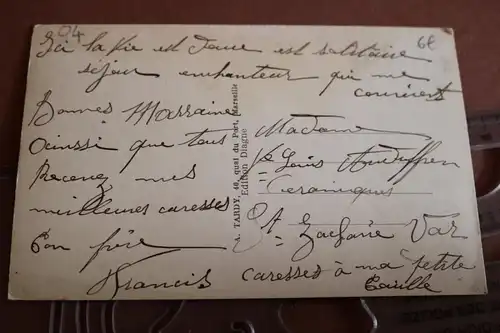 04
6€
Ici la Vie est douce est solitaire
séjour enchanteur qui me
convient
Bonnes Marraine
Ainssi que tous
Recevez mes
meilleures caresses
Ton frère
Francis
TARDY, 40, quai du Port, Marseille
Edition Diagne
Madame
Louis Audiffren
Ceramiques
St Zacharie Var
caresses à ma petite